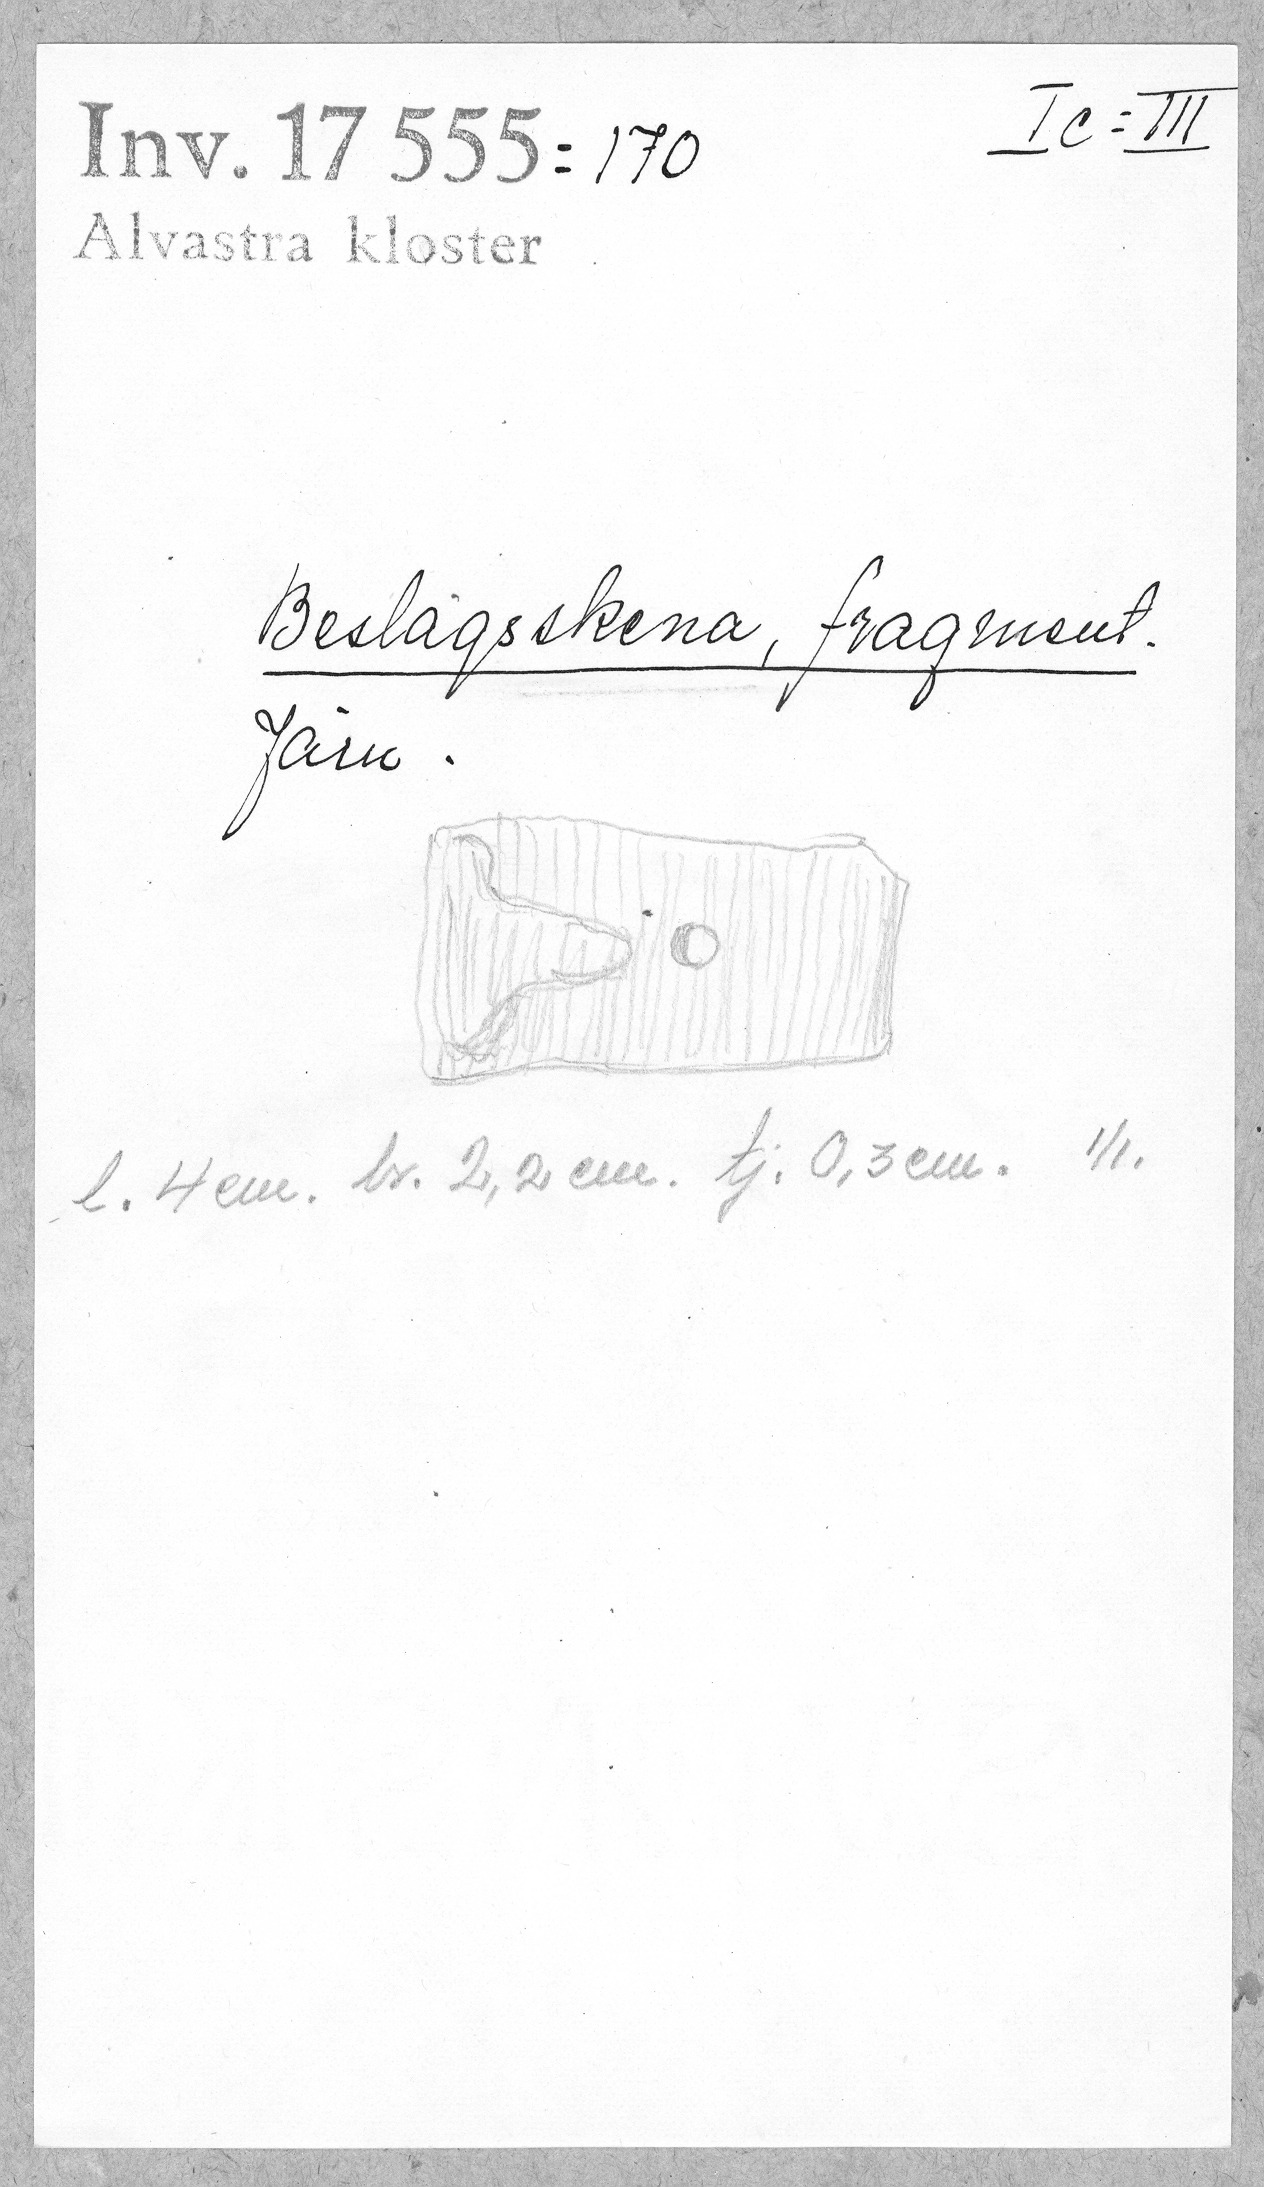 Inv. 17 555:170
Ic:III
Alvastra kloster
Beslagsskena, fragment.
Järn.
l. 4 cm. br. 2,2 cm. tj. 0,3 cm. 1/1.